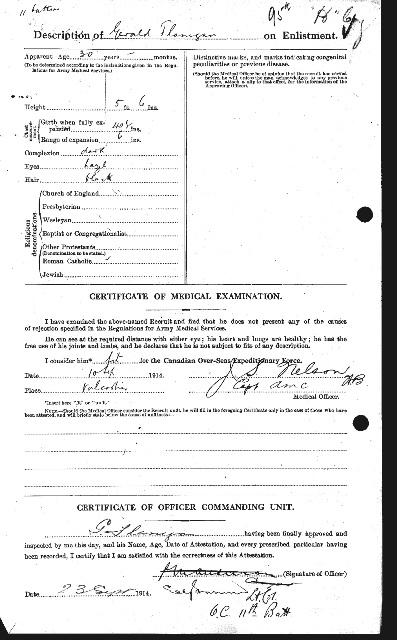 11 Batt
95th "H" Coy
Description of Gerald Flanigan on Enlistment.
Apparent Age 30 years months.
(To be determined according to the instructions given in the Regulations for Army Medical Services.)
Distinctive marks, and marks indicating congenital peculiarities or previous disease.
(Should the Medical Officer be of opinion that the recruit has served before, he will, unless the man acknowledges to any previous service, attach a slip to that effect, for the information of the Approving Officer).
Height 5 ft. 6 ins.
Girth when fully expanded ins.
Range of expansion 6 ins.
Complexion dark
Eyes hazel
Hair black
Religious denominations
Church of England
Presbyterian
Wesleyan
Baptist or Congregationalist
Other Protestants
(Denomination to be stated.)
Roman Catholic
Jewish
CERTIFICATE OF MEDICAL EXAMINATION.
I have examined the above-named Recruit and find that he does not present any of the causes of rejection specified in the Regulations for Army Medical Services.
He can see at the required distance with either eye; his heart and lungs are healthy; he has the free use of his joints and limbs, and he declares that he is not subject to fits of any description.
I consider him* fit for the Canadian Over-Seas Expeditionary Force.
Date 10 Sept 1914.
J S Nelson
Place Valcartier
Capt AMC
Medical Officer.
*Insert here "fit" or "unfit."
NOTE.—Should the Medical Officer consider the Recruit unfit, he will fill in the foregoing Certificate only in the case of those who have been attested, and will briefly state below the cause of unfitness:—
CERTIFICATE OF OFFICER COMMANDING UNIT.
G Flanigan having been finally approved and
inspected by me this day, and his Name, Age, Date of Attestation, and every prescribed particular having
been recorded, I certify that I am satisfied with the correctness of this Attestation.
(Signature of Officer)
Date 23 Sept 1914.
Lt Col
O.C. 11th Batt